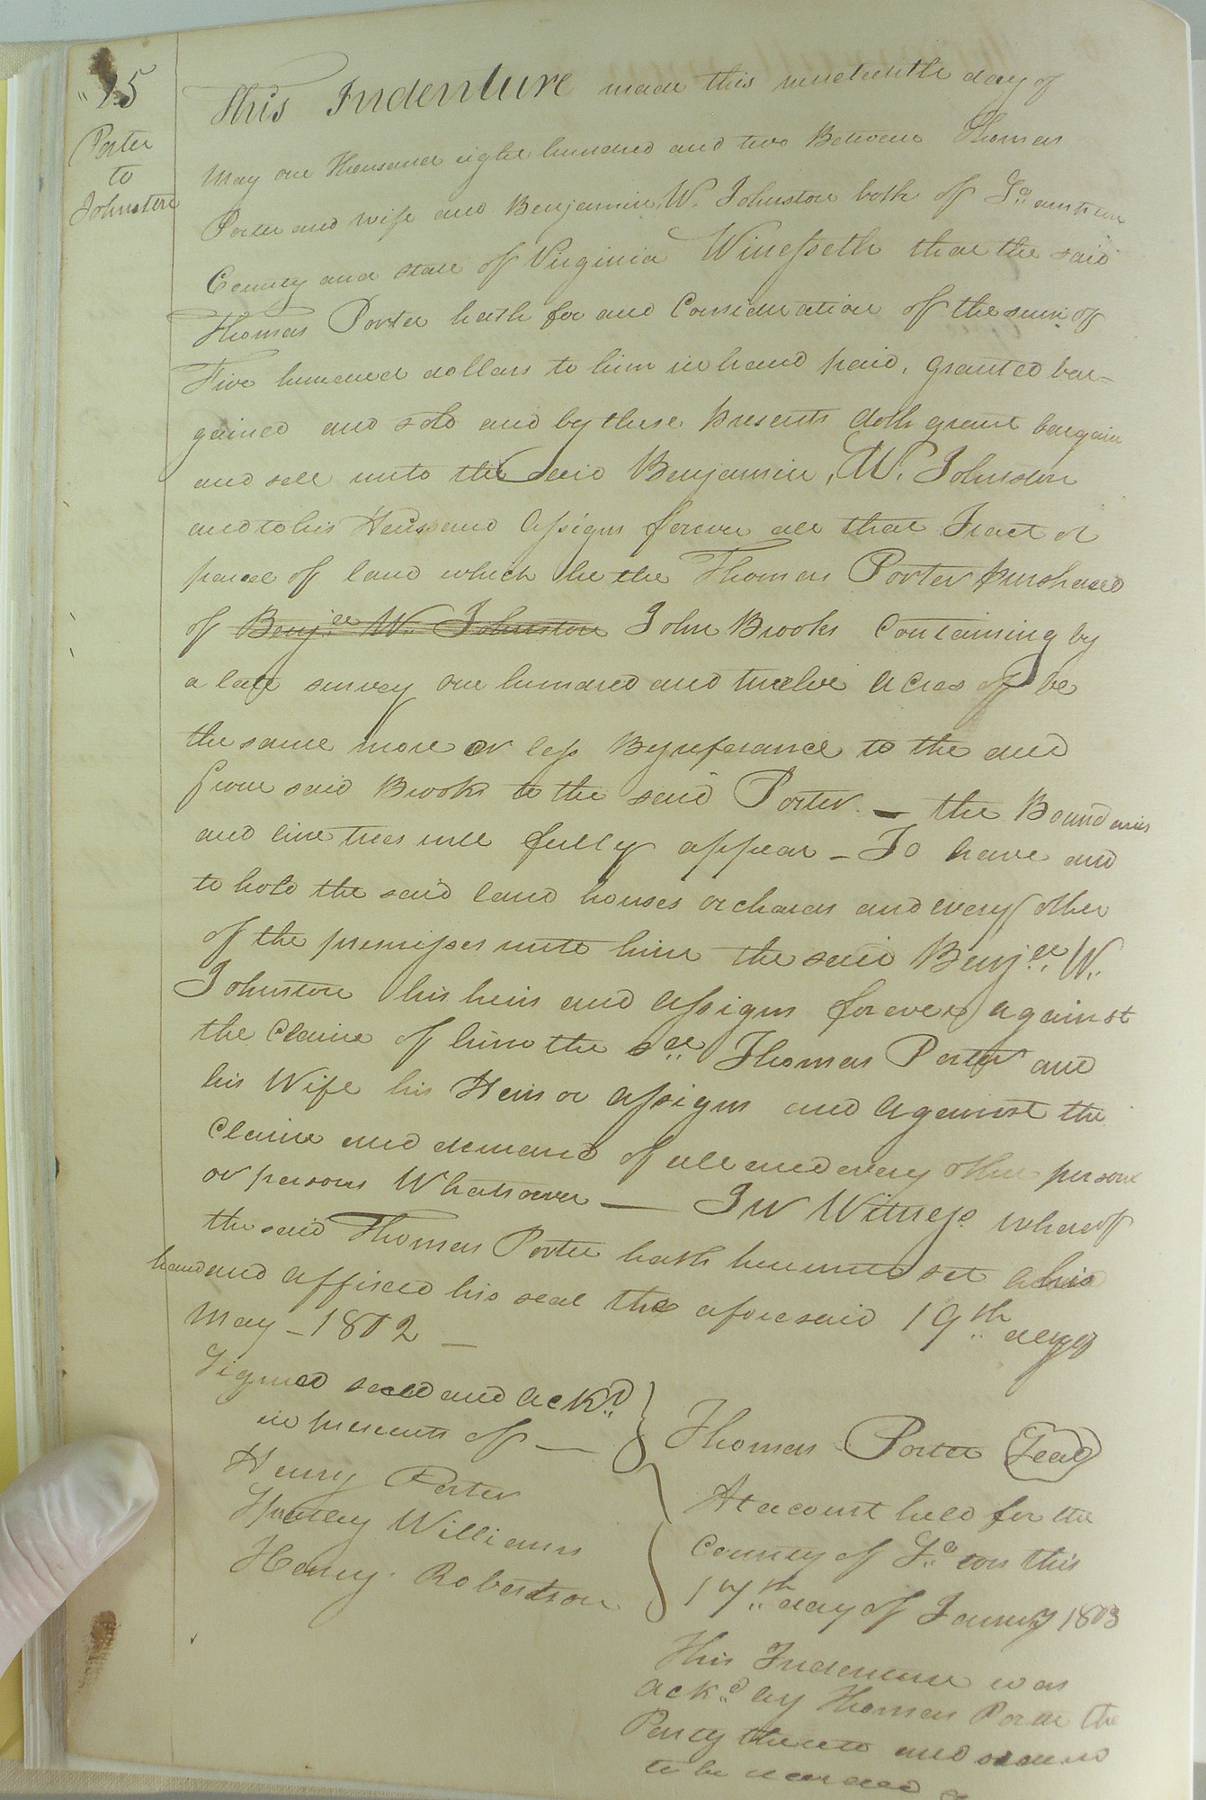 95
Porter
to
Johnston
This Indenture made this nineteenth day of
May one thousand eight hundred and two Between Thomas
Porter and wife and Benjamin W. Johnston both of
County and state of Virginia Winesseth that the said
Thomas Porter hath for and Consideration of the sum of
Five hundred dollars to him in hand paid, granted bar-
gained and sold and by these presents doth grant bargain
and sell unto the said Benjamin, W. Johnston
and to his Heirs and assigns forever all that Tract or
parcel of land which he the Thomas Porter purchased
of Benjn W. Johnston John Brooks Containing by
a late survey one hundred and twelve acres of be
the same more or less By referance to the deed
from said Brooks to the said Porter - the Boundaries
and line trees will fully appear - To have and
to hold the said land houses orchards and every other
of the premisses unto him the said Benjn W.
Johnston his heirs and assigns forever against
the Claim of him the sd Thomas Porter and
his Wife his Heirs or assigns and against the
Claim and demand of all and every other person
or persons Whatsoever — In Witness whereof
the said Thomas Porter hath hereunto set his
hand and affixed his seal the aforesaid 19th day of
May - 1802 —
Signed seald and ackd
in presents of —
Thomas Porter Seal
Henry Porter
Williams
Henry Robertson
At a court held for the
County of La on this
17th day of January 1803
This Indenture was
ackd by Thomas Porter the
Party thereto and ordered
to be recorded